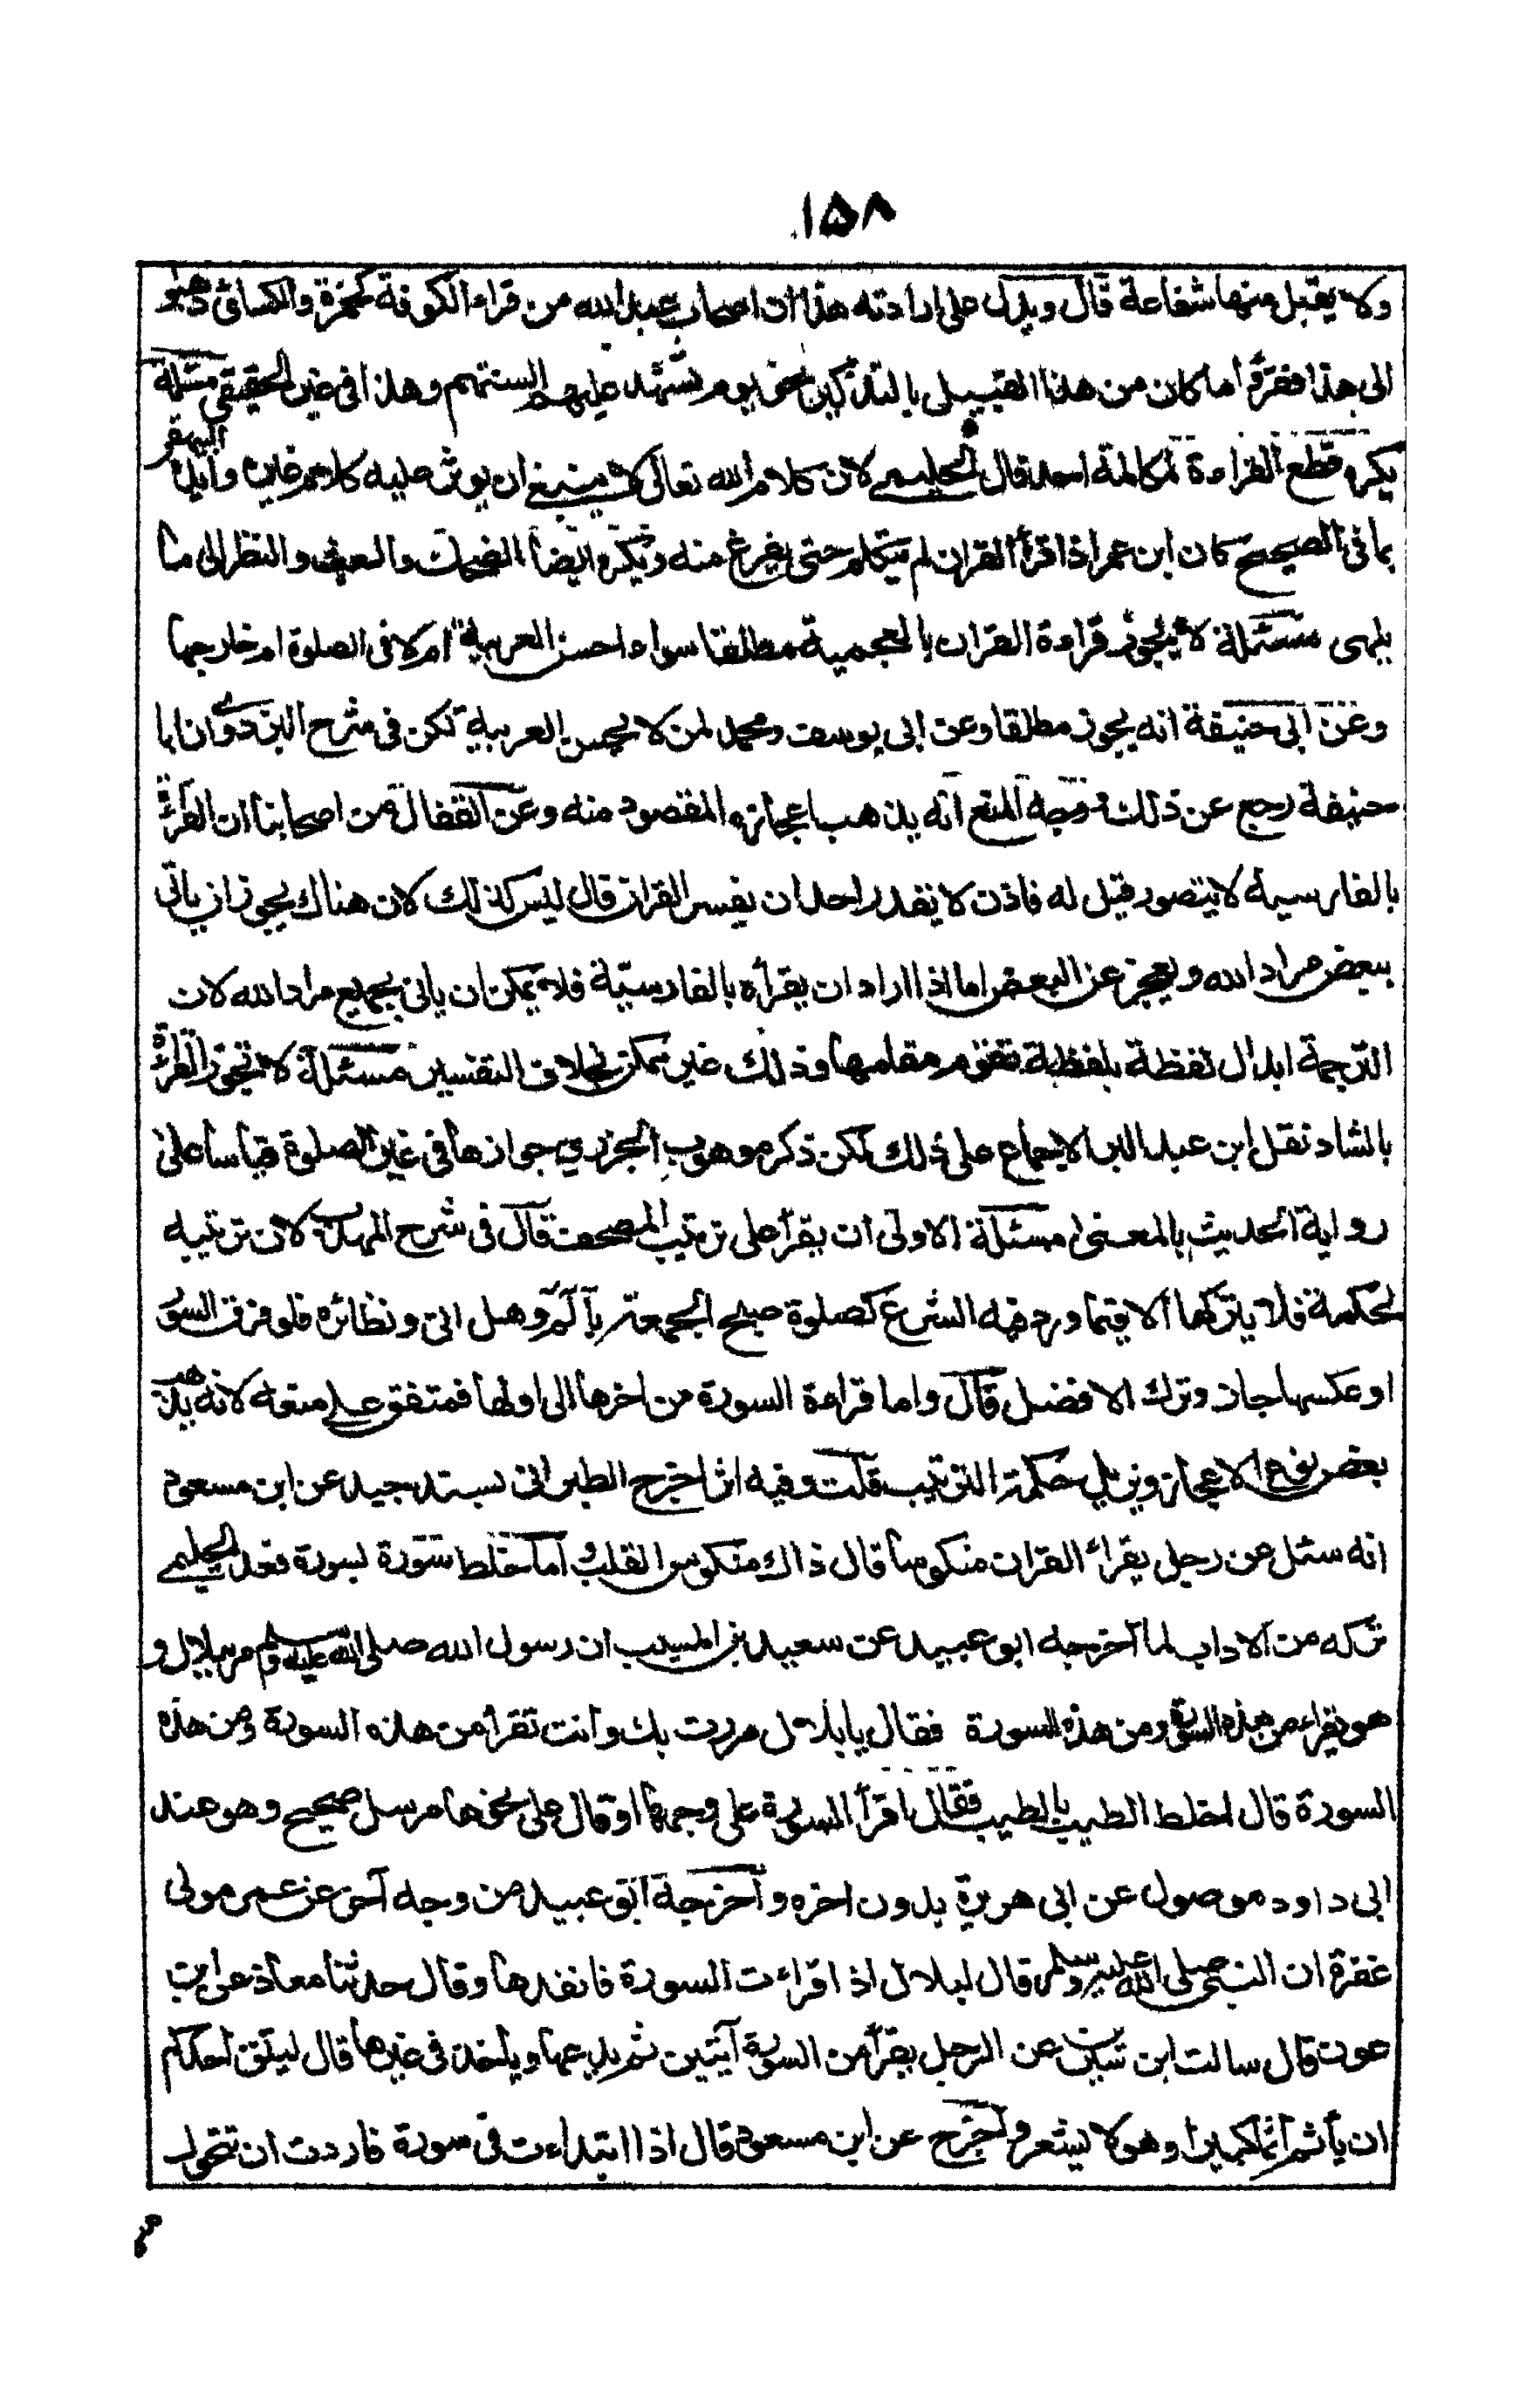 ١٥٨
ولا يقبل منها شفاعة قال ويدل على ارادته هذا ان اصحاب عبد الله من قراء الكوفة كحمزة والكسائى ذهبوا
الى هذا فقرؤا ما كان من هذا القبيل بالتذكير نحو يوم يشهد عليهم السنتهم وهذا فى غير الحقيقى مسئلة
يكره قطع القراءة لمكالمة احد قال الحليمى لان كلام الله تعالى لا ينبغى ان يوثر عليه كلام غيره وايده البيهقى
بما فى الصحيح كان ابن عمر اذا قرأ القران لم يتكلم حتى يفرغ منه ويكره ايضا الضحك والعبث والنظر الى ما
يلهى مسئلة لا يجوز قراءة القران بالعجمية مطلقا سواء احسن العربية ام لا فى الصلوة ام خارجها
وعن ابى حنيفة انه يجوز مطلقا وعن ابى يوسف ومحمد لمن لا يحسن العربية لكن فى شرح البزدوى ان ابا
حنيفة رجع عن ذلك ووجه المنع انه يذهب اعجازه المقصود منه وعن القفال من اصحابنا ان القراءة
بالفارسية لا يتصور قيل له فاذن لا يقدر احد ان يفسر القران قال ليس كذلك لان هناك يجوز ان ياتى
ببعض مراد الله ويعجز عن البعض اما اذا اراد ان يقرأه بالفارسية فلا يمكن ان ياتى بجميع مراد الله لان
الترجمة ابدال لفظة بلفظة تقوم مقامها وذلك غير ممكن بخلاف التفسير مسئلة لا تجوز القراءة
بالشاذ نقل ابن عبد البر الاجماع على ذلك لكن ذكر موهوب الجزرى جوازها فى غير الصلوة قياسا على
رواية الحديث بالمعنى مسئلة الاولى ان يقرأ على ترتيب المصحف قال فى شرح المهذب لان ترتيبه
لحكمة فلا يتركها الا فيما ورد فيه الشرع كصلوة صبح الجمعة بآلم وهل اتى ونظائره فلو فرق السور
او عكسها جاز وترك الافضل قال واما قراءة السورة من اخرها الى اولها فمتفق على منعه لانه يذهب
بعض نوع الاعجاز ويزيل حكمة الترتيب قلت وفيه اثر اخرج الطبرانى بسند جيد عن ابن مسعود
انه سئل عن رجل يقراء القران منكوسا قال ذاك منكوس القلب واما خلط سورة بسورة فعد الحليمى
تركه من الاداب لما اخرجه ابو عبيد عن سعيد بن المسيب ان رسول الله صلى الله عليه وسلم مر ببلال و
هو يقراء من هذه السورة ومن هذه السورة فقال يا بلال مررت بك وانت تقرأ من هذه السورة ومن هذه
السورة قال اخلط الطيب بالطيب فقال اقرأ السورة على وجهها او قال على نحوها مرسل صحيح وهو عند
ابى داود موصول عن ابى هريرة بدون اخره واخرجه ابو عبيد من وجه آخر عن عمر مولى
غفرة ان النبى صلى الله عليه وسلم قال لبلال اذا قراءت السورة فانفدها وقال حدثنا معاذ عن ابن
عون قال سالت ابن سيرين عن الرجل يقرأ من السورة آيتين ثم يدعها وياخذ فى غيرها قال ليتق احدكم
ان يأثم اثما كبيرا وهو لا يشعر واخرج عن ابن مسعود قال اذا ابتداءت فى سورة فاردت ان تتحول